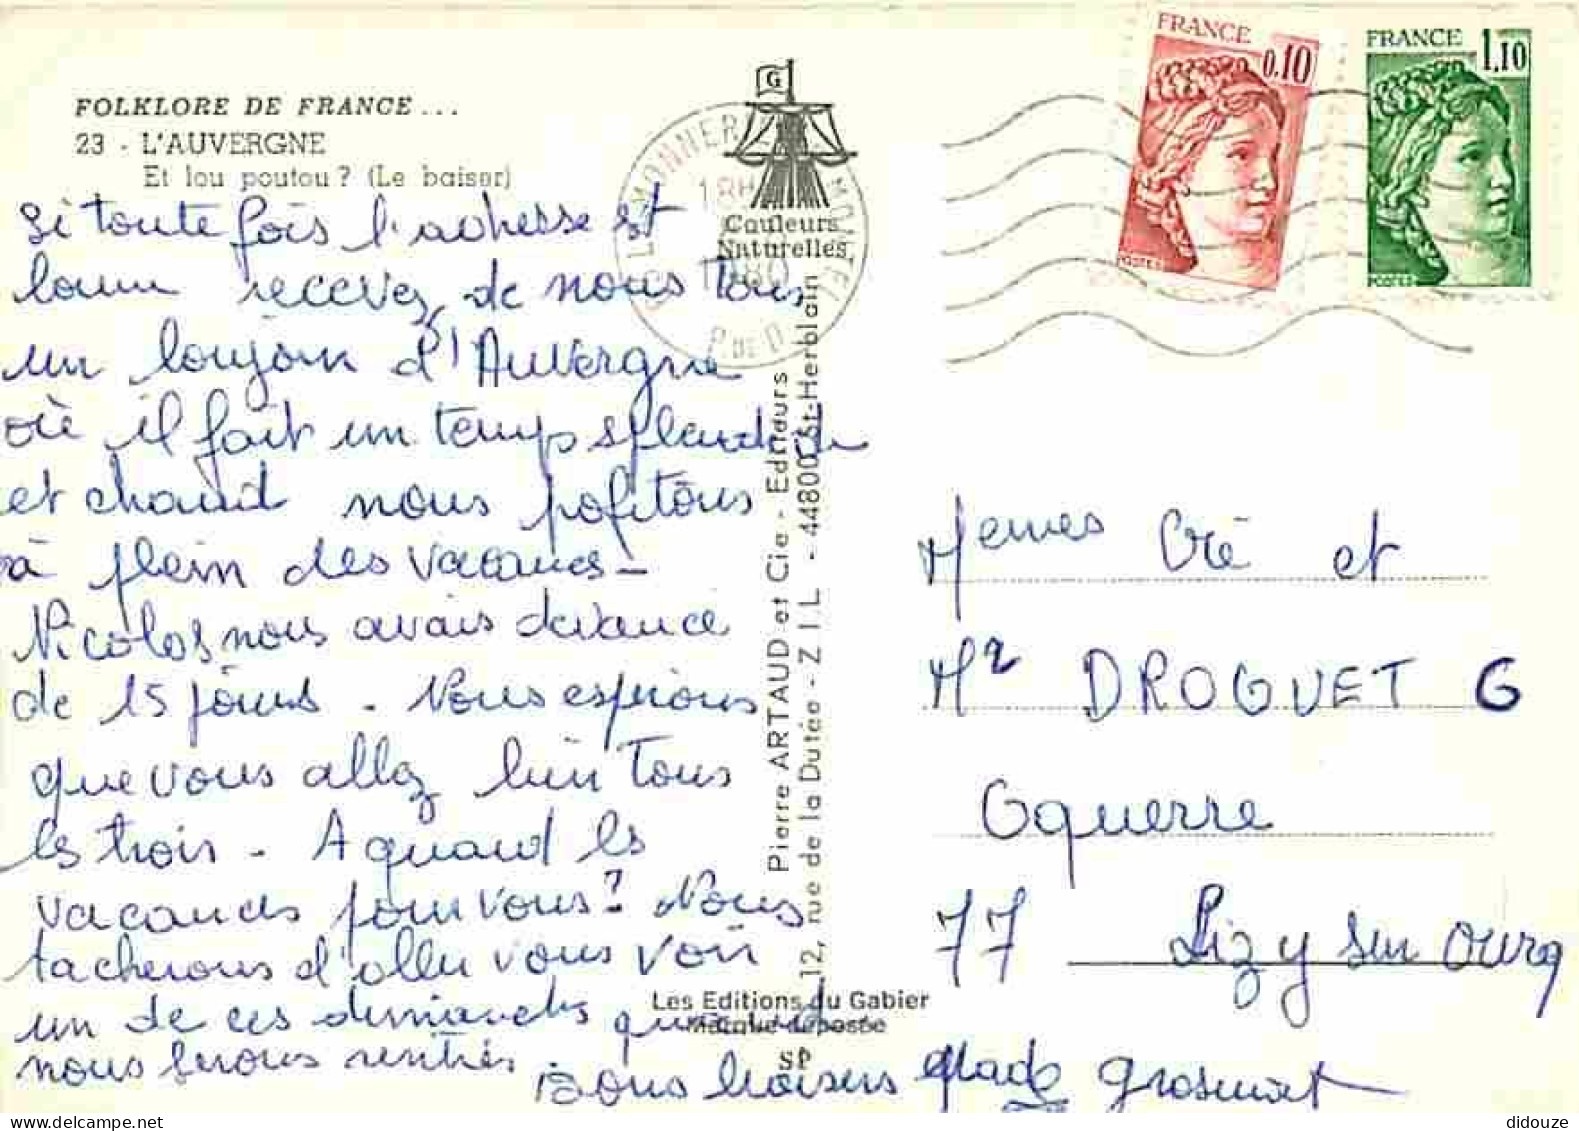 FOLKLORE DE FRANCE ...
23 - L'AUVERGNE
Et lou poutou ? (Le baiser)
G
Couleurs
Naturelles
18H
1980
P. DE D
FRANCE
0,10
POSTES
FRANCE
1,10
POSTES
Si toute fois l'adresse est
bonne recevez de nous tous
un bonjour d'Auvergne
où il fait un temps splendide
et chaud nous pofitons
à plein des vacances -
Nicolas nous avais devancé
de 15 jours. Nous espérons
que vous allez bien tous
les trois - A quand les
vacances pour vous? Nous
tacherons d'aller vous voir
un de ces dimanches quand
nous serons rentrés
Bons baisers
Pierre ARTAUD et Cie - Editeurs
12, rue de la Dutée - Z I L - 44800 St-Herblain
Les Editions du Gabier
Marque déposée
SP
Memes Cré et
Mr DROGUET G
Ocquerre
77 Lizy sur Ourcq
didouze